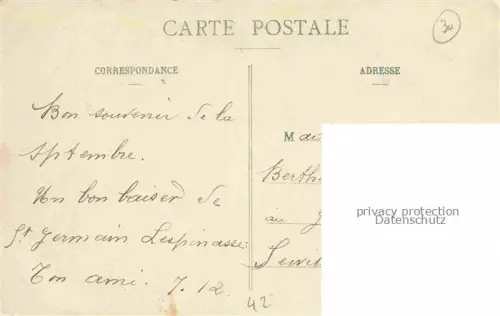 CARTE POSTALE
30
CORRESPONDANCE
ADRESSE
Bon souvenir de la
Septembre.
Un bon baiser de
St Germain Lespinasse
Ton ami. J. 12.
M
Berth
au
privacy protection
Datenschutz
42